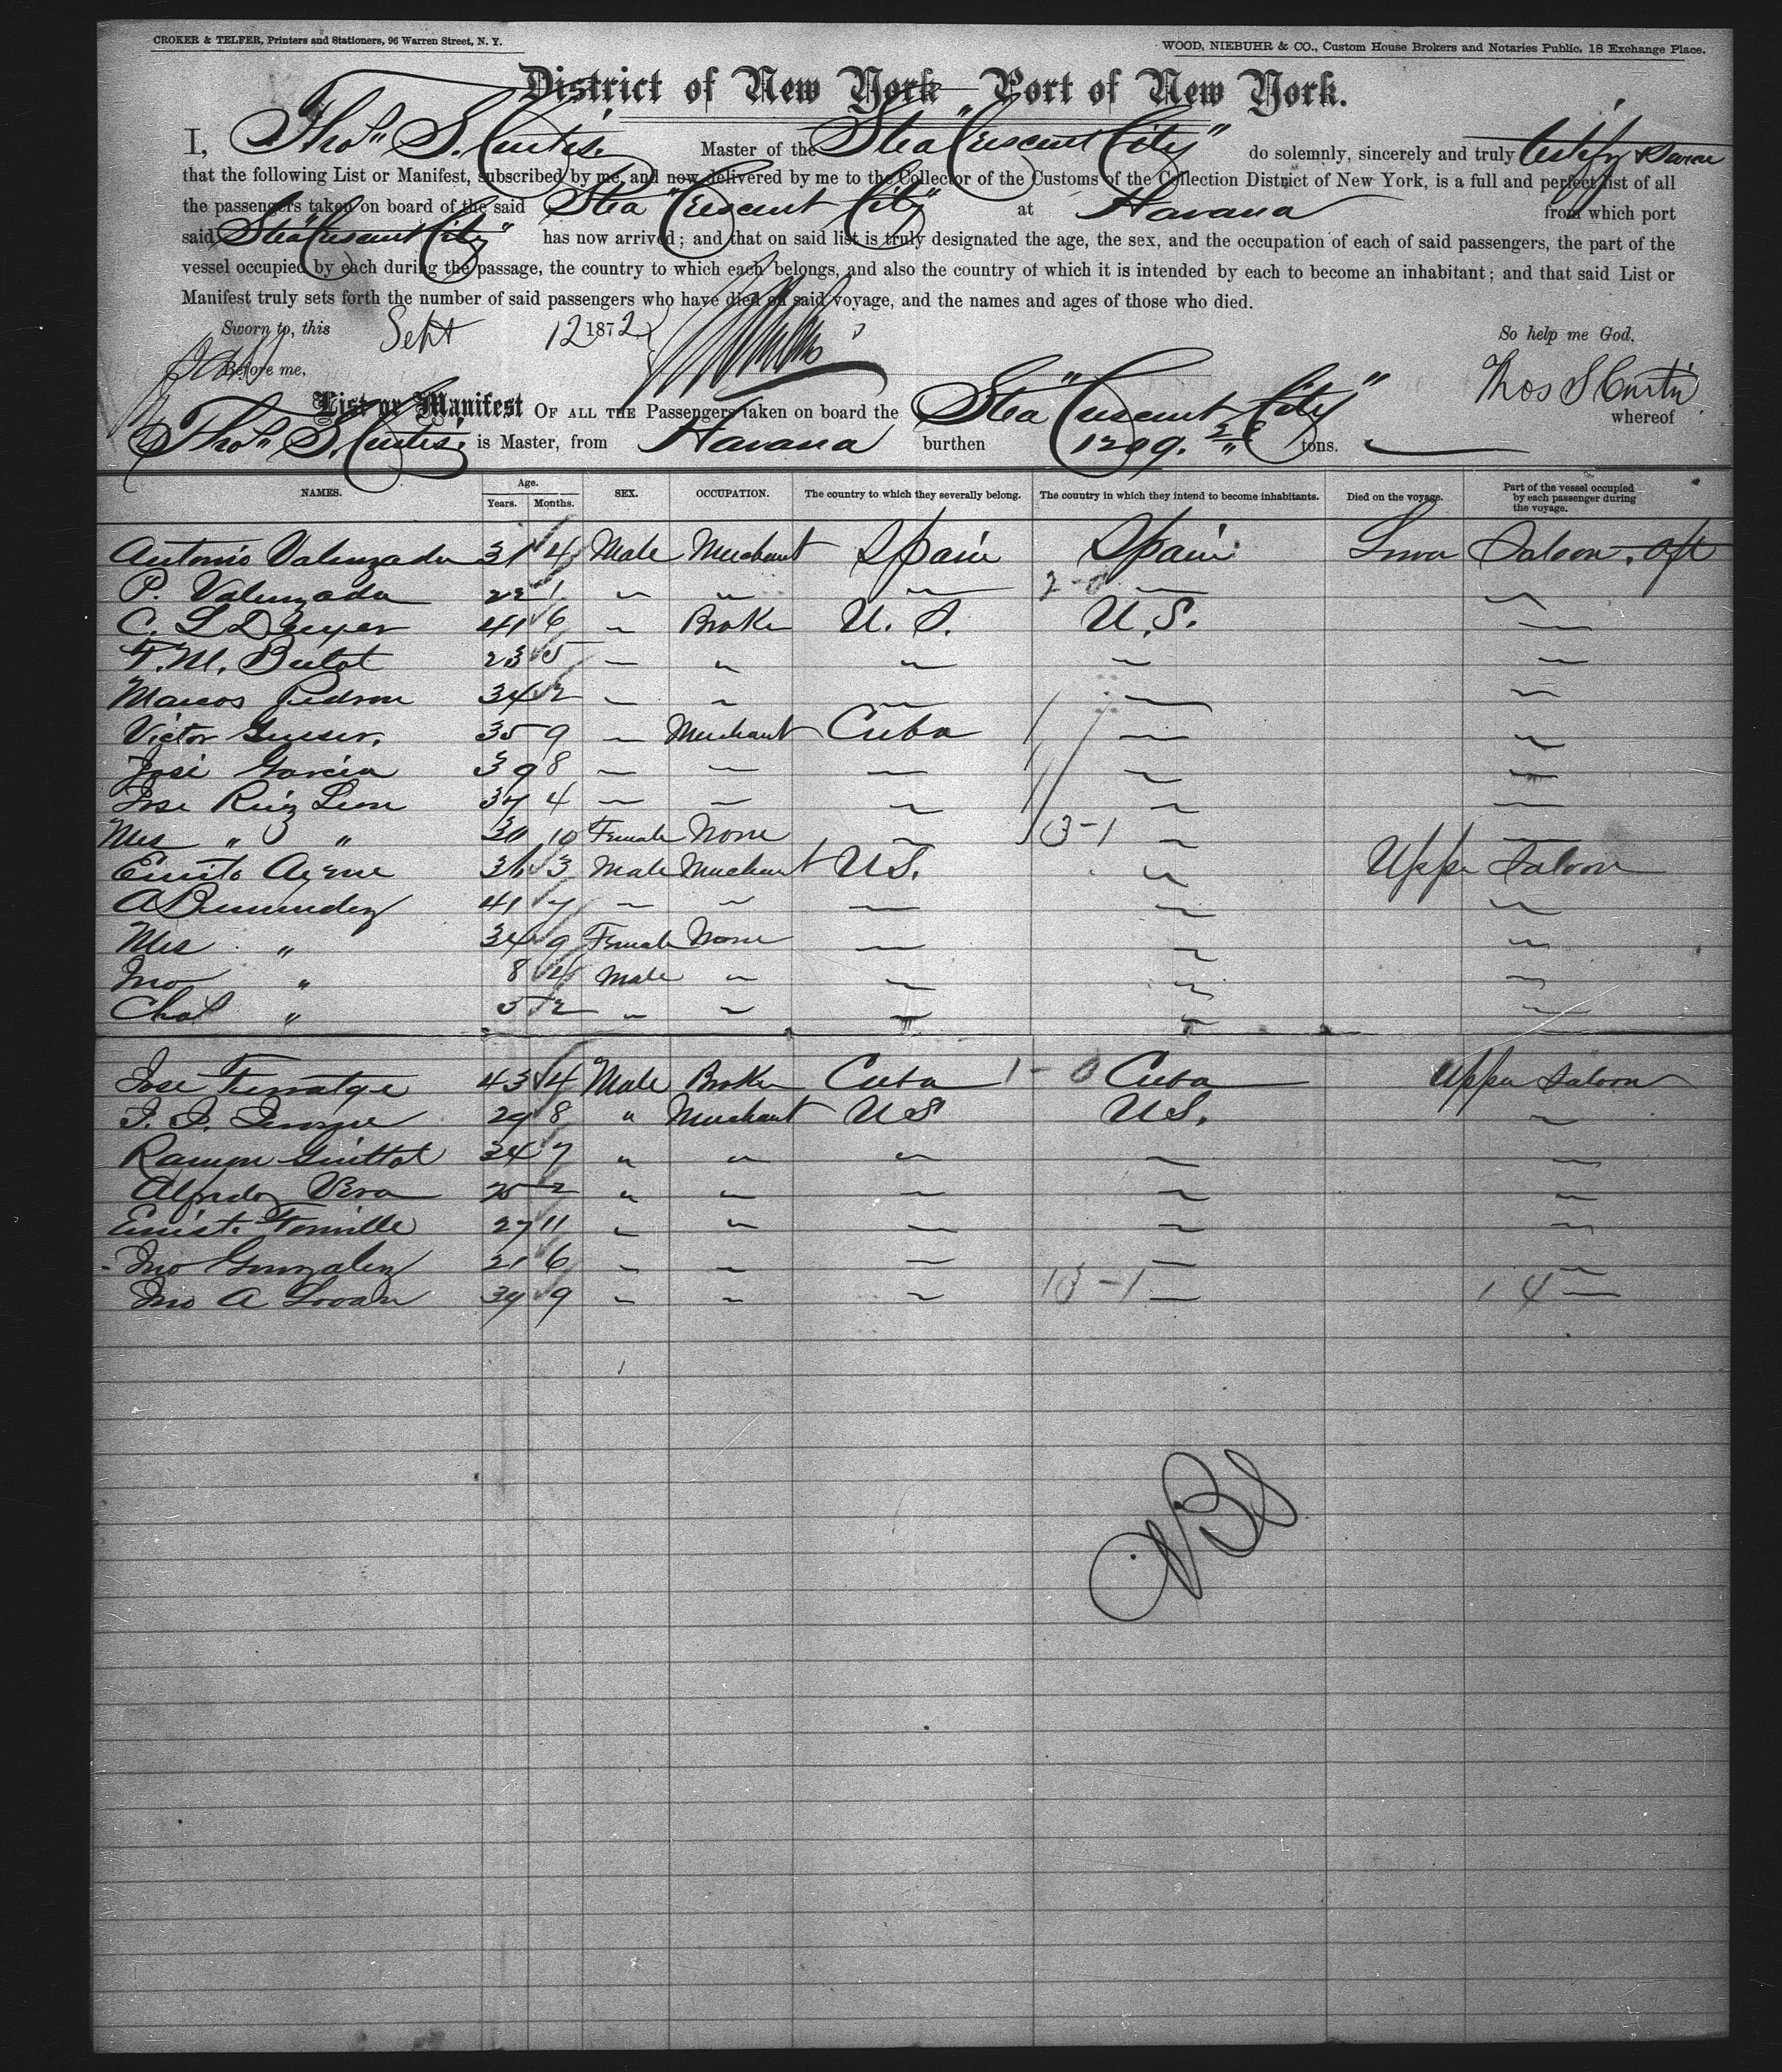 CROKER & TELFER, Printers and Stationers, 96 Warren Street, N. Y.
WOOD, NIEBUHR & CO., Custom House Brokers and Notaries Public, 18 Exchange Place.
District of New York—Port of New York.
I, Thos S. Curtis. Master of the Stea "Crescent City" do solemnly, sincerely and truly Certify & Swear
that the following List or Manifest, subscribed by me, and now delivered by me to the Collector of the Customs of the Collection District of New York, is a full and perfect list of all
the passengers taken on board of the said Stea "Crescent City" at Havana from which port
said Stea "Crescent City" has now arrived; and that on said list is truly designated the age, the sex, and the occupation of each of said passengers, the part of the
vessel occupied by each during the passage, the country to which each belongs, and also the country of which it is intended by each to become an inhabitant; and that said List or
Manifest truly sets forth the number of said passengers who have died on said voyage, and the names and ages of those who died.
Sworn to, this Sept 12 1872 So help me God,
Before me, Thos S Curtis
List or Manifest OF ALL THE Passengers taken on board the Stea "Crescent City" whereof
Thos S. Curtis. is Master, from Havana burthen 1209. tons.
NAMES. Age. Years. Months. SEX. OCCUPATION. The country to which they severally belong. The country in which they intend to become inhabitants. Died on the voyage. Part of the vessel occupied by each passenger during the voyage.
Antonio Valenzada 31 4 Male Merchant Spain Spain Lower Saloon. aft
P. Valenzada 22 1 " " " 2-0 " "
C. L Dreyer 41 6 " Broker U. S. U.S. "
F. M. Butot 23 5 " " " " "
Marcos 34 2 " " " " "
Victor 35 9 " Merchant Cuba " "
José Garcia 39 8 " " " " "
Jose Ruiz Leon 37 4 " " " " "
Mrs " " 30 10 Female None " 13-1 " "
36 3 Male Merchant U.S. " Upper Saloon
A Bermudez 41 7 " " " " "
Mrs " 34 9 Female None " " "
Jno " 8 4 Male " " " "
Chas " 5 2 " " " " "
Jose 43 4 Male Broker Cuba 1-0 Cuba Upper Saloon
29 8 " Merchant US U.S. "
Ramon Guittot 34 7 " " " " "
Alfredo Vera 25 2 " " " " "
Ernst. Tonville 27 11 " " " " "
Jno Gonzalez 21 6 " " " " "
Jno A 39 9 " " " 13-1 " 14 "